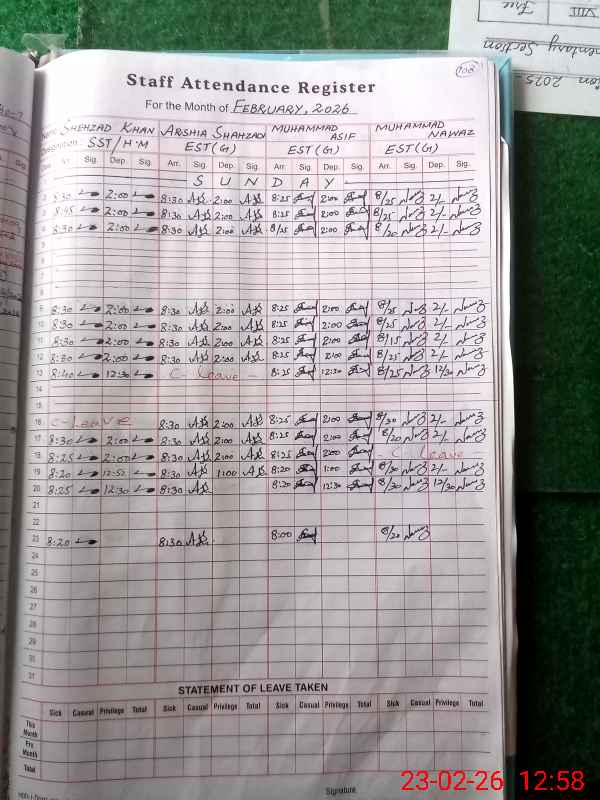 VIII Free
mentary Section
ion 2025-
108
Staff Attendance Register
For the Month of FEBRUARY, 2026
Name SHEHZAD KHAN ARSHIA SHAHZAD MUHAMMAD ASIF MUHAMMAD NAWAZ
Designation SST/H.M EST(G) EST(G) EST(G)
Date Arr. Sig. Dep. Sig. Arr. Sig. Dep. Sig. Arr. Sig. Dep. Sig. Arr. Sig. Dep. Sig.
S U N D A Y
2 8:30 2:00 8:30 2:00 8:25 2:00 8/25 2/-
3 8:45 2:00 8:30 2:00 8:25 2:00 8/25 2/-
4 8:30 2:00 8:30 2:00 8/25 2:00 8/20 2/-
5
6
7
8
9 8:30 2:00 8:30 2:00 8:25 2:00 8/25 2/-
10 8:30 2:00 8:30 2:00 8:25 2:00 8/25 2/-
11 8:30 2:00 8:30 2:00 8:25 2:00 8/15 2/-
12 8:30 2:00 8:30 2:00 8:25 2:00 8/25 2/-
13 8:40 12:30 C- leave - 8:25 12:30 8/25 12/30
14
15
16 C-LEAVE 8:30 2:00 8:25 2:00 8/30 2/-
17 8:30 2:00 8:30 2:00 8:25 2:00 8/20 2/-
18 8:25 2:00 8:30 2:00 8:25 2:00 - C leave -
19 8:20 12:52 8:30 1:00 8:20 1:00 8/30 2/-
20 8:25 12:30 8:30 8:20 12:30 8/30 12/30
21
22
23 8:20 8:30 8:00 8/20
24
25
26
27
28
29
30
31
STATEMENT OF LEAVE TAKEN
Sick Casual Privilege Total Sick Casual Privilege Total Sick Casual Privilege Total Sick Casual Privilege Total
This Month
Pre Month
Total
Signature
23-02-26 12:58